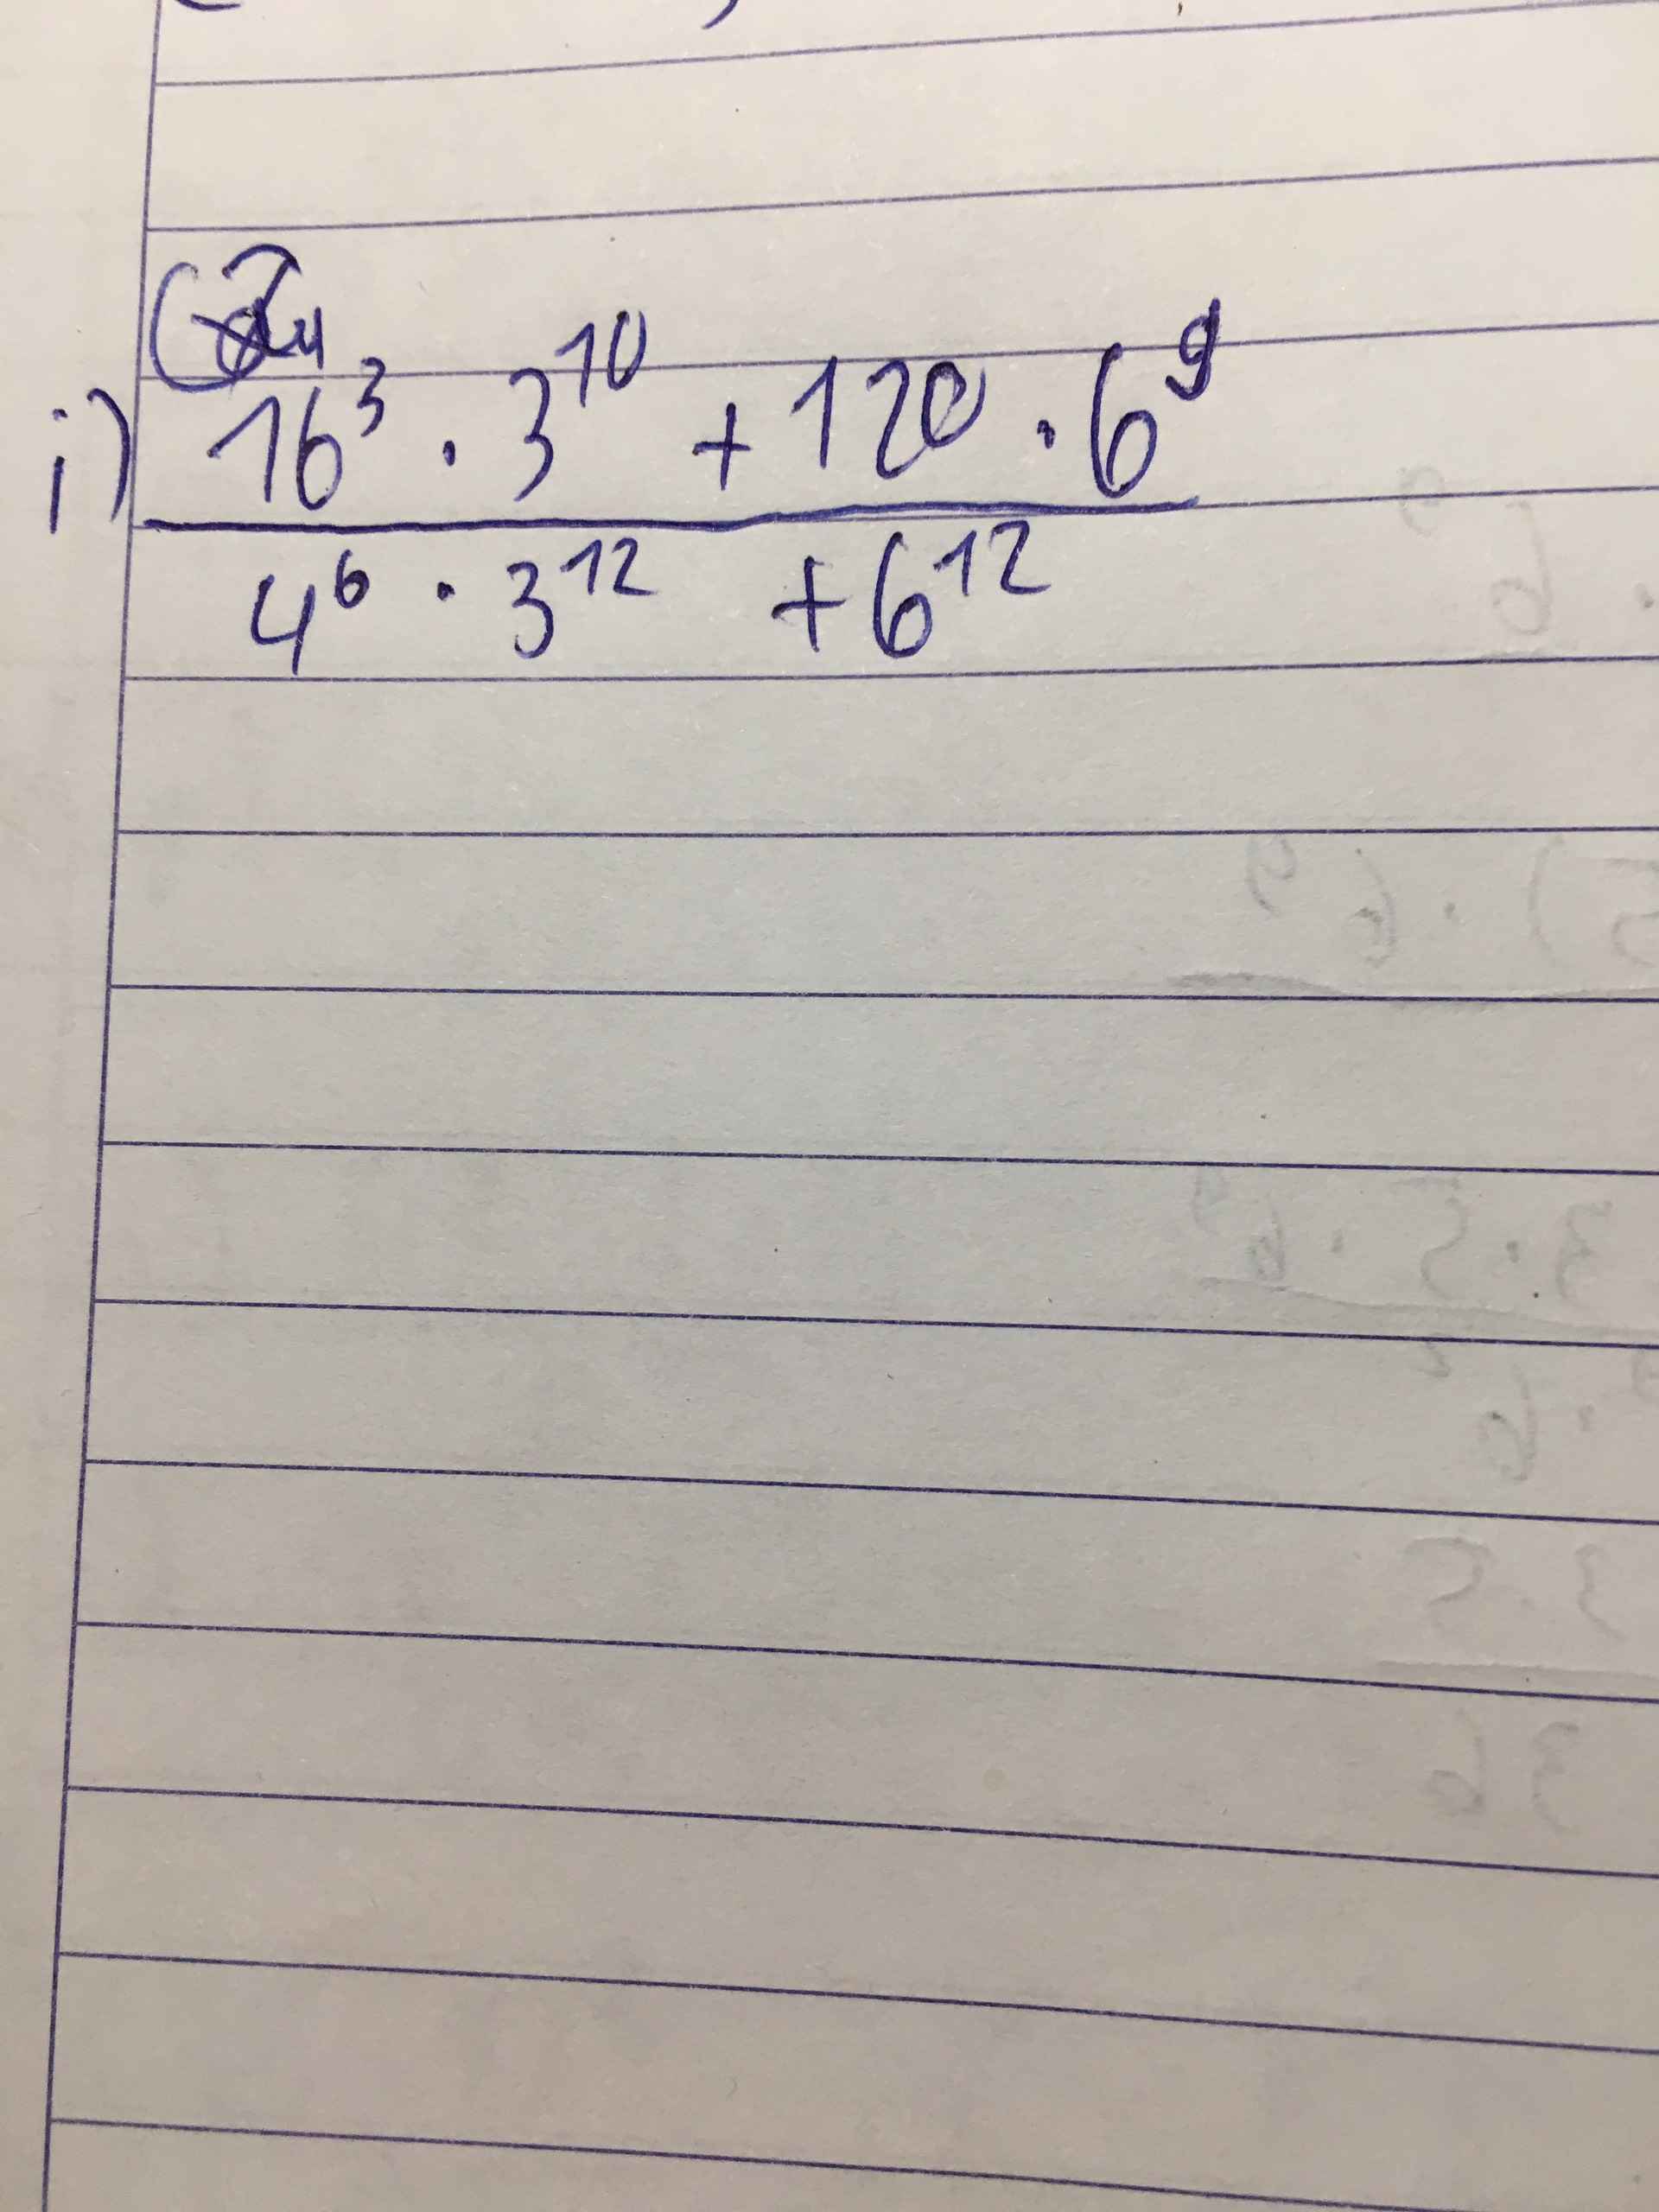 i) 16³ · 3¹⁰ + 120 · 6⁹
4⁶ · 3¹² + 6¹²